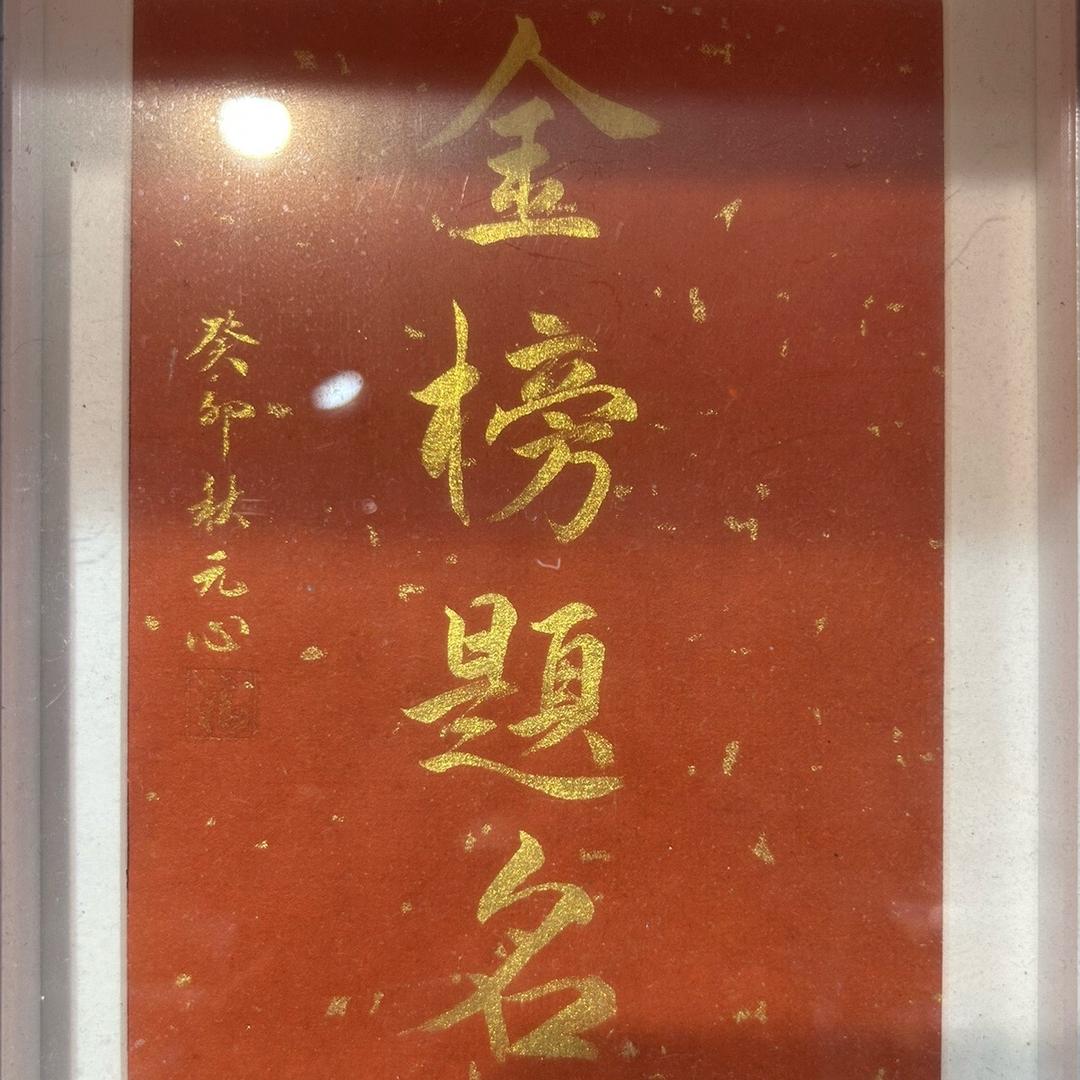 金榜題名
癸卯秋元心